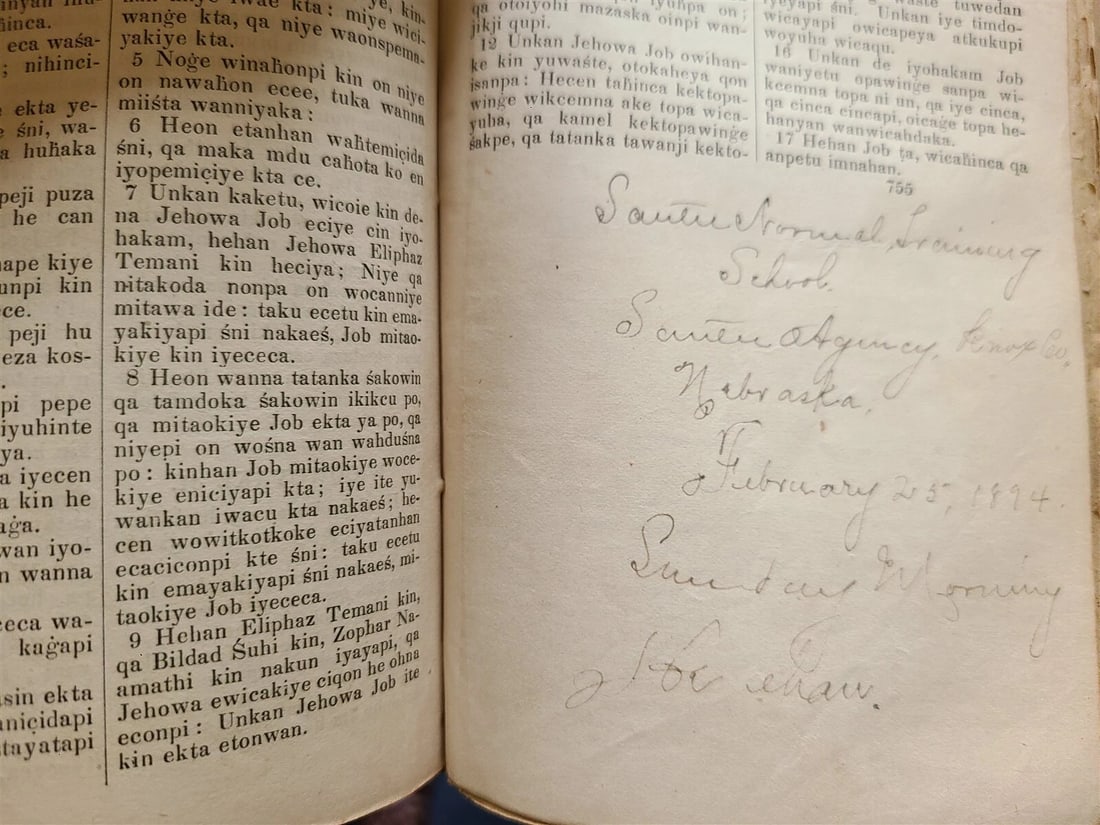 inca.
eca waśa-
; nihinci-
ekta ye-
śni, wa-
a huḣaka
peji puza
he can
ape kiye
unpi kin
ce.
peji hu
eza kos-
pi pepe
iyuhinte
ya.
a iyecen
a kin he
aġa.
wan iyo-
n wanna
ceca wa-
kaġapi
sin ekta
aniçidapi
tayatapi
wanġe kta, qa niye waonspema-
yakiye kta.
5 Noġe winaḣonpi kin on niye
on nawaḣon ecee, tuka wanna
miiśta wanniyaka:
6 Heon etanhan waḣtemiçida
śni, qa maka mdu caḣota ko en
iyopemiçiye kta ce.
7 Unkan kaketu, wicoie kin de-
na Jehowa Job eciye cin iyo-
hakam, hehan Jehowa Eliphaz
Temani kin heciya; Niye qa
nitakoda nonpa on wocanniye
mitawa ide: taku ecetu kin ema-
yakiyapi śni nakaeś, Job mitao-
kiye kin iyececa.
8 Heon wanna tatanka śakowin
qa tamdoka śakowin ikikcu po,
qa mitaokiye Job ekta ya po, qa
niyepi on wośna wan wahduśna
po: kinhan Job mitaokiye woce-
kiye eniciyapi kta; iye ite yu-
wankan iwacu kta nakaeś; he-
cen wowitkotkoke eciyatanhan
ecaciconpi kte śni: taku ecetu
kin emayakiyapi śni nakaeś, mi-
taokiye Job iyececa.
9 Hehan Eliphaz Temani kin,
qa Bildad Śuhi kin, Zophar Na-
amathi kin nakun iyayapi, qa
Jehowa ewicakiye ciqon he ohna
econpi: Unkan Jehowa Job ite
kin ekta etonwan.
qa otoiyohi mazaska oinpi wan-
jikji qupi.
12 Unkan Jehowa Job owihan-
ke kin yuwaśte, otokaheya qon
isanpa: Hecen taḣinca kektopa-
winġe wikcemna ake topa wica-
yuha, qa kamel kektopawinġe
śakpe, qa tatanka tawanji kekto-
tuwedan
iyeyapi śni. Unkan iye timdo-
wicayapi owicapeya atkukupi
woyuha wicaqu.
16 Unkan de iyohakam Job
waniyetu opawinġe sanpa wi-
kcemna topa ni un, qa iye cinca,
qa cinca cincapi, oicaġe topa he-
hanyan wanwicahdaka.
17 Hehan Job ṭa, wicaḣinca qa
anpetu imnahan.
755
Santee Normal Training
School.
Santee Agency, Knox Co,
Nebraska,
February 25, 1894.
Sunday Morning